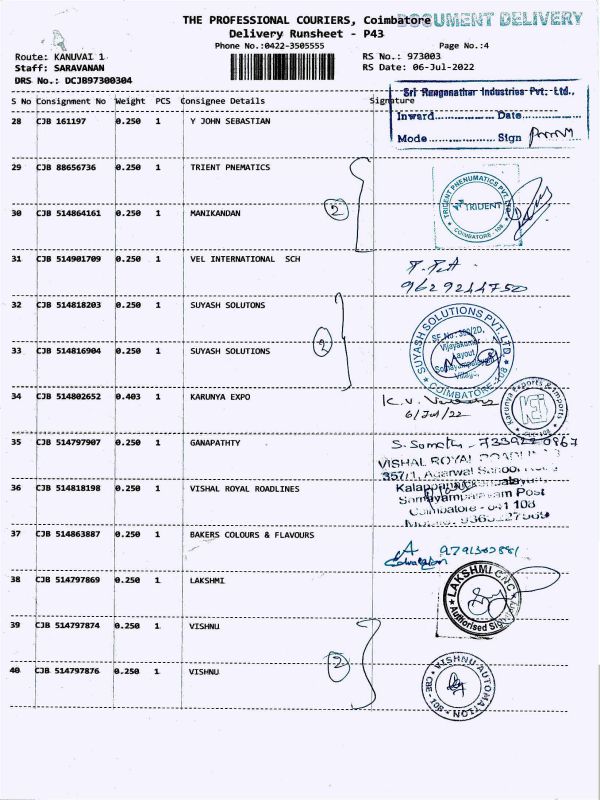 THE PROFESSIONAL COURIERS, Coimbatore
DOCUMENT DELIVERY
Delivery Runsheet - P43
Phone No.:0422-3505555
Page No.:4
Route: KANUVAI 1
RS No.: 973003
Staff: SARAVANAN
RS Date: 06-Jul-2022
DRS No.: DCJB97300304
Sri Ranganathar Industries Pvt. Ltd.,
S No Consignment No Weight PCS Consignee Details Signature
Inward................ Date................
28 CJB 161197 0.250 1 Y JOHN SEBASTIAN
Mode................ Sign
29 CJB 88656736 0.250 1 TRIENT PNEMATICS
TRIDENT PNEUMATICS PVT. LTD.
TRIDENT
COIMBATORE - 108
2
30 CJB 514864161 0.250 1 MANIKANDAN
31 CJB 514901709 0.250 1 VEL INTERNATIONAL SCH
9629244750
32 CJB 514818203 0.250 1 SUYASH SOLUTONS
SUYASH SOLUTIONS PVT. LTD.
SF.No: 360/2D,
Vijayakumar
Layout,
Somayampalayam
Village,
COIMBATORE-108
2
33 CJB 514816904 0.250 1 SUYASH SOLUTIONS
34 CJB 514802652 0.403 1 KARUNYA EXPO
K.V.
6/Jul/22
Karunya Exports & Imports
KEI
35 CJB 514797907 0.250 1 GANAPATHTY
VISHAL ROYAL ROADLINES
357/1, Agarwal School
36 CJB 514818198 0.250 1 VISHAL ROYAL ROADLINES
Somayampalayam Post
Coimbatore - 641 108
37 CJB 514863887 0.250 1 BAKERS COLOURS & FLAVOURS
38 CJB 514797869 0.250 1 LAKSHMI
LAKSHMI CNC
Authorised Sign
39 CJB 514797874 0.250 1 VISHNU
2
40 CJB 514797876 0.250 1 VISHNU
VISHNU AUTOMATION
CBE - 108